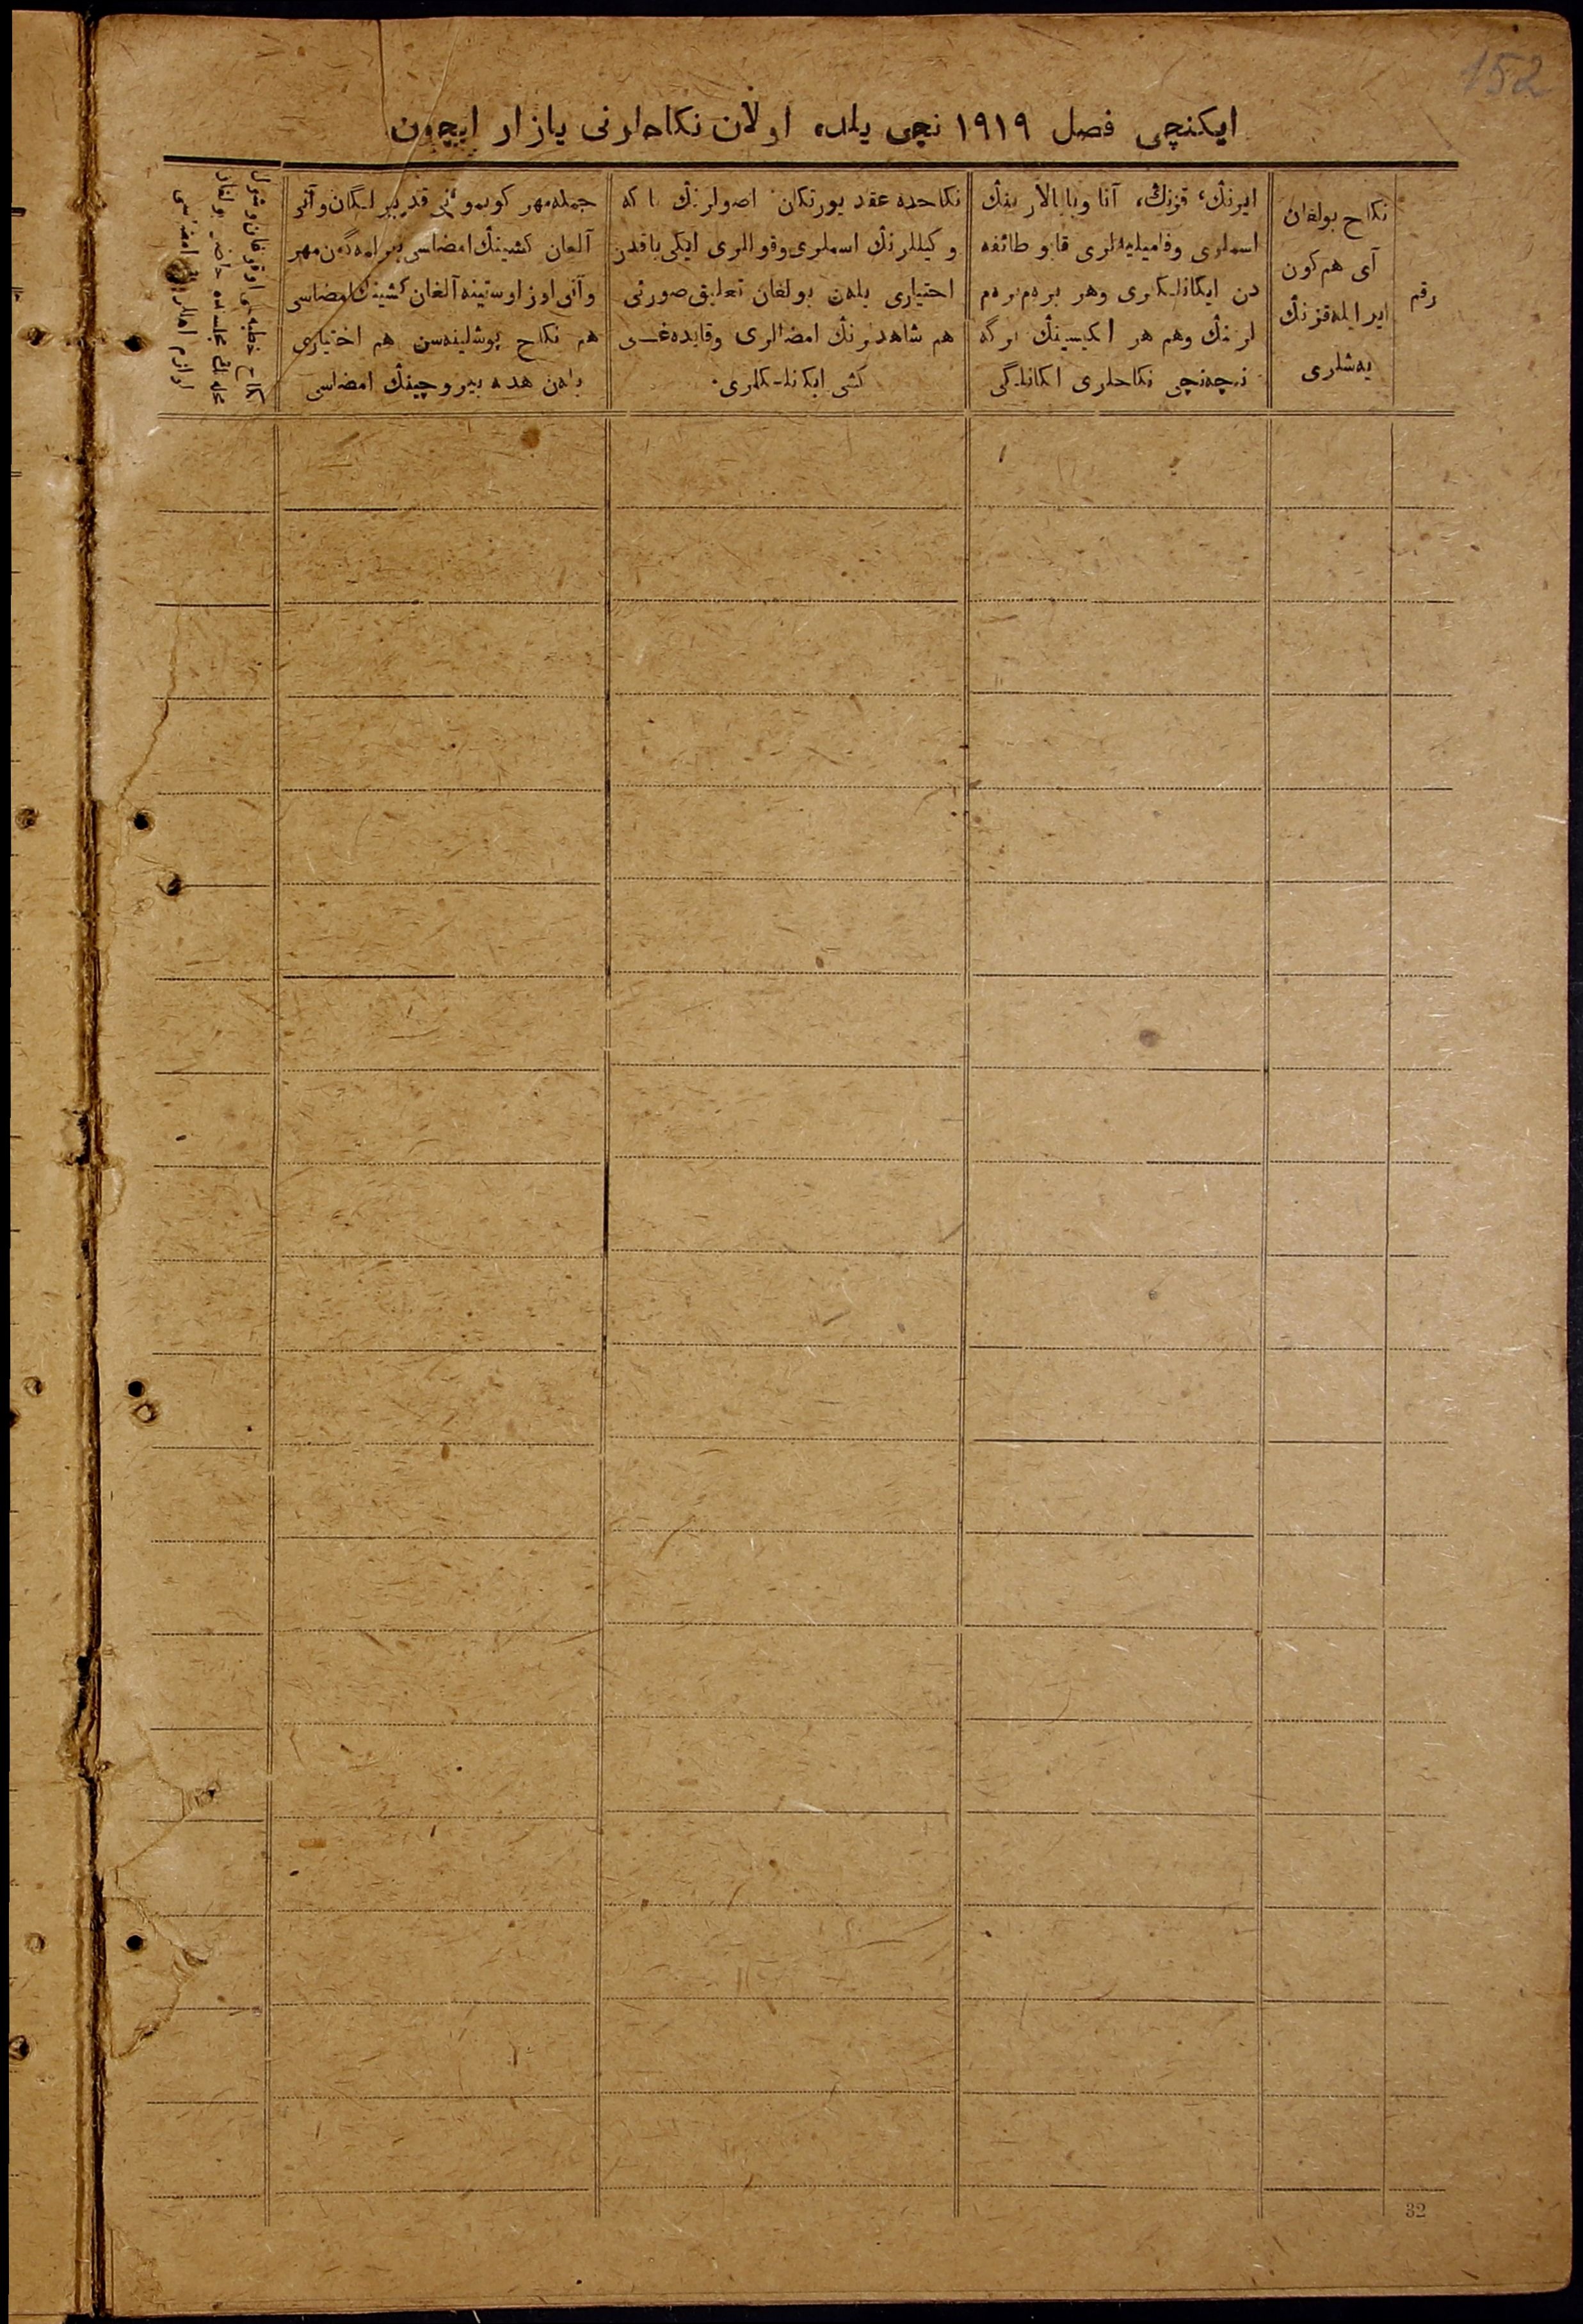 152
ایکنچی فصل ۱۹۱۹ نچی یلده اولان نکاحلرنی یازار ایچون
رقم
نکاح بولغان
آی هم کون
ایر ایله قزنڭ
یەشلری
ایرنڭ، قزنڭ، آنا وبابالارینڭ
اسملری وفامیلیەلری قایو طائفه
دن ایکانلکلری وهر برەم برەم
لرنڭ وهم هر ایکیسینڭ برگه
نیچەنچی نکاحلری ایکانلگی
نکاحده عقد یورتکان اصولرنڭ یا که
وکیللرنڭ اسملری وقوللری ایکی یاقدن
اختیاری بلەن بولغان تعلیق صورتی
هم شاهدلرنڭ امضالری وقایده‌غی
کشی ایکانلکلری.
جمله مهر کوبمو نی قدر بیرلگان وآنی
آلغان کشینڭ امضاسی بیرلمەگەن مهر
وآنی اوز اوستینه آلغان کشینڭ امضاسی
هم نکاح بوشلینەسن هم اختیاری
بلەن هده بیروچینڭ امضاسی
نکاح خطبه اوقوغان وشول
مجلسده حاضر بولغان
32